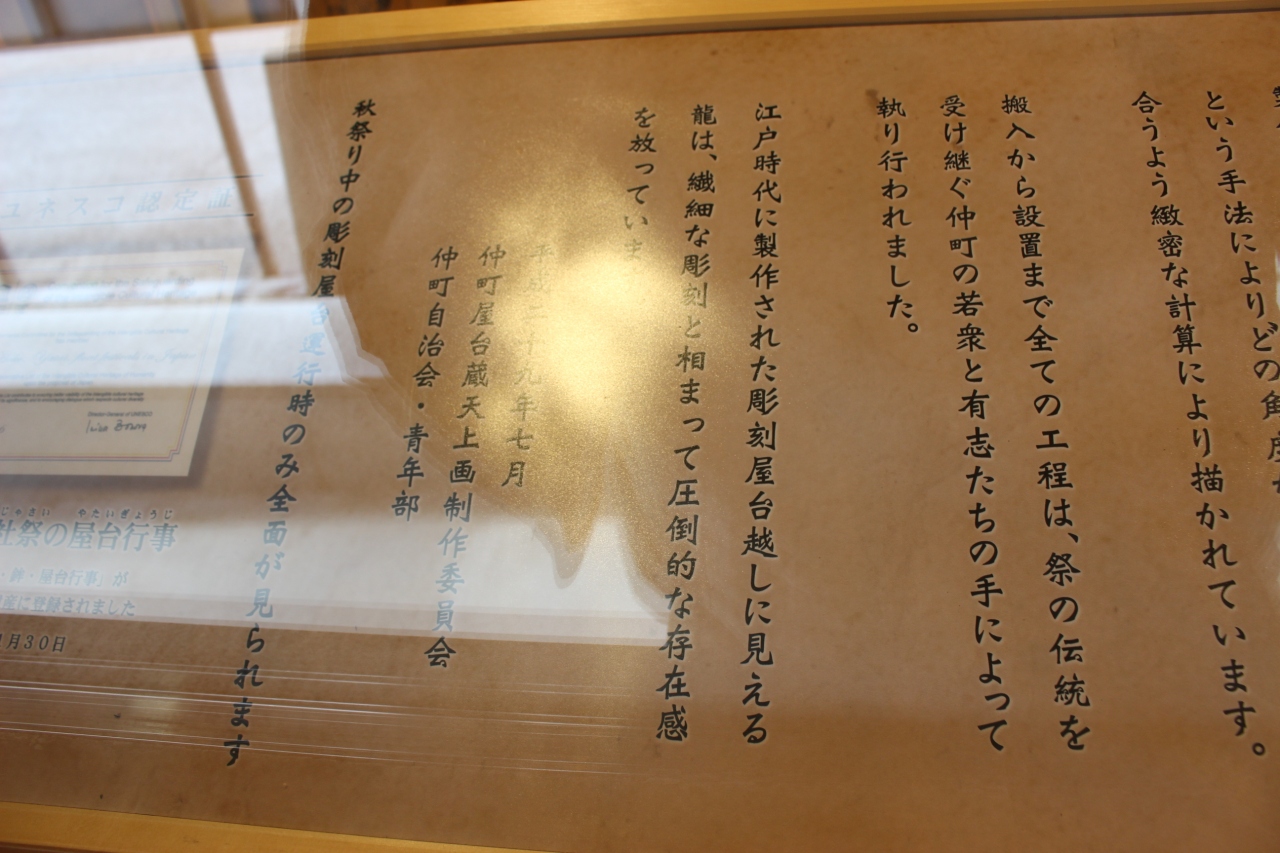 という手法によりどの角度
合うよう緻密な計算により描かれています。
搬入から設置まで全ての工程は、祭の伝統を
受け継ぐ仲町の若衆と有志たちの手によって
執り行われました。
江戸時代に製作された彫刻屋台越しに見える
龍は、繊細な彫刻と相まって圧倒的な存在感
を放っていま
平成二十九年七月
仲町屋台蔵天上画制作委員会
仲町自治会・青年部
秋祭り中の彫刻屋台運行時のみ全面が見られます
ユネスコ認定証
Director-General of UNESCO
じゃさい やたいぎょうじ
社祭の屋台行事
・鉾・屋台行事」が
産に登録されました
月30日